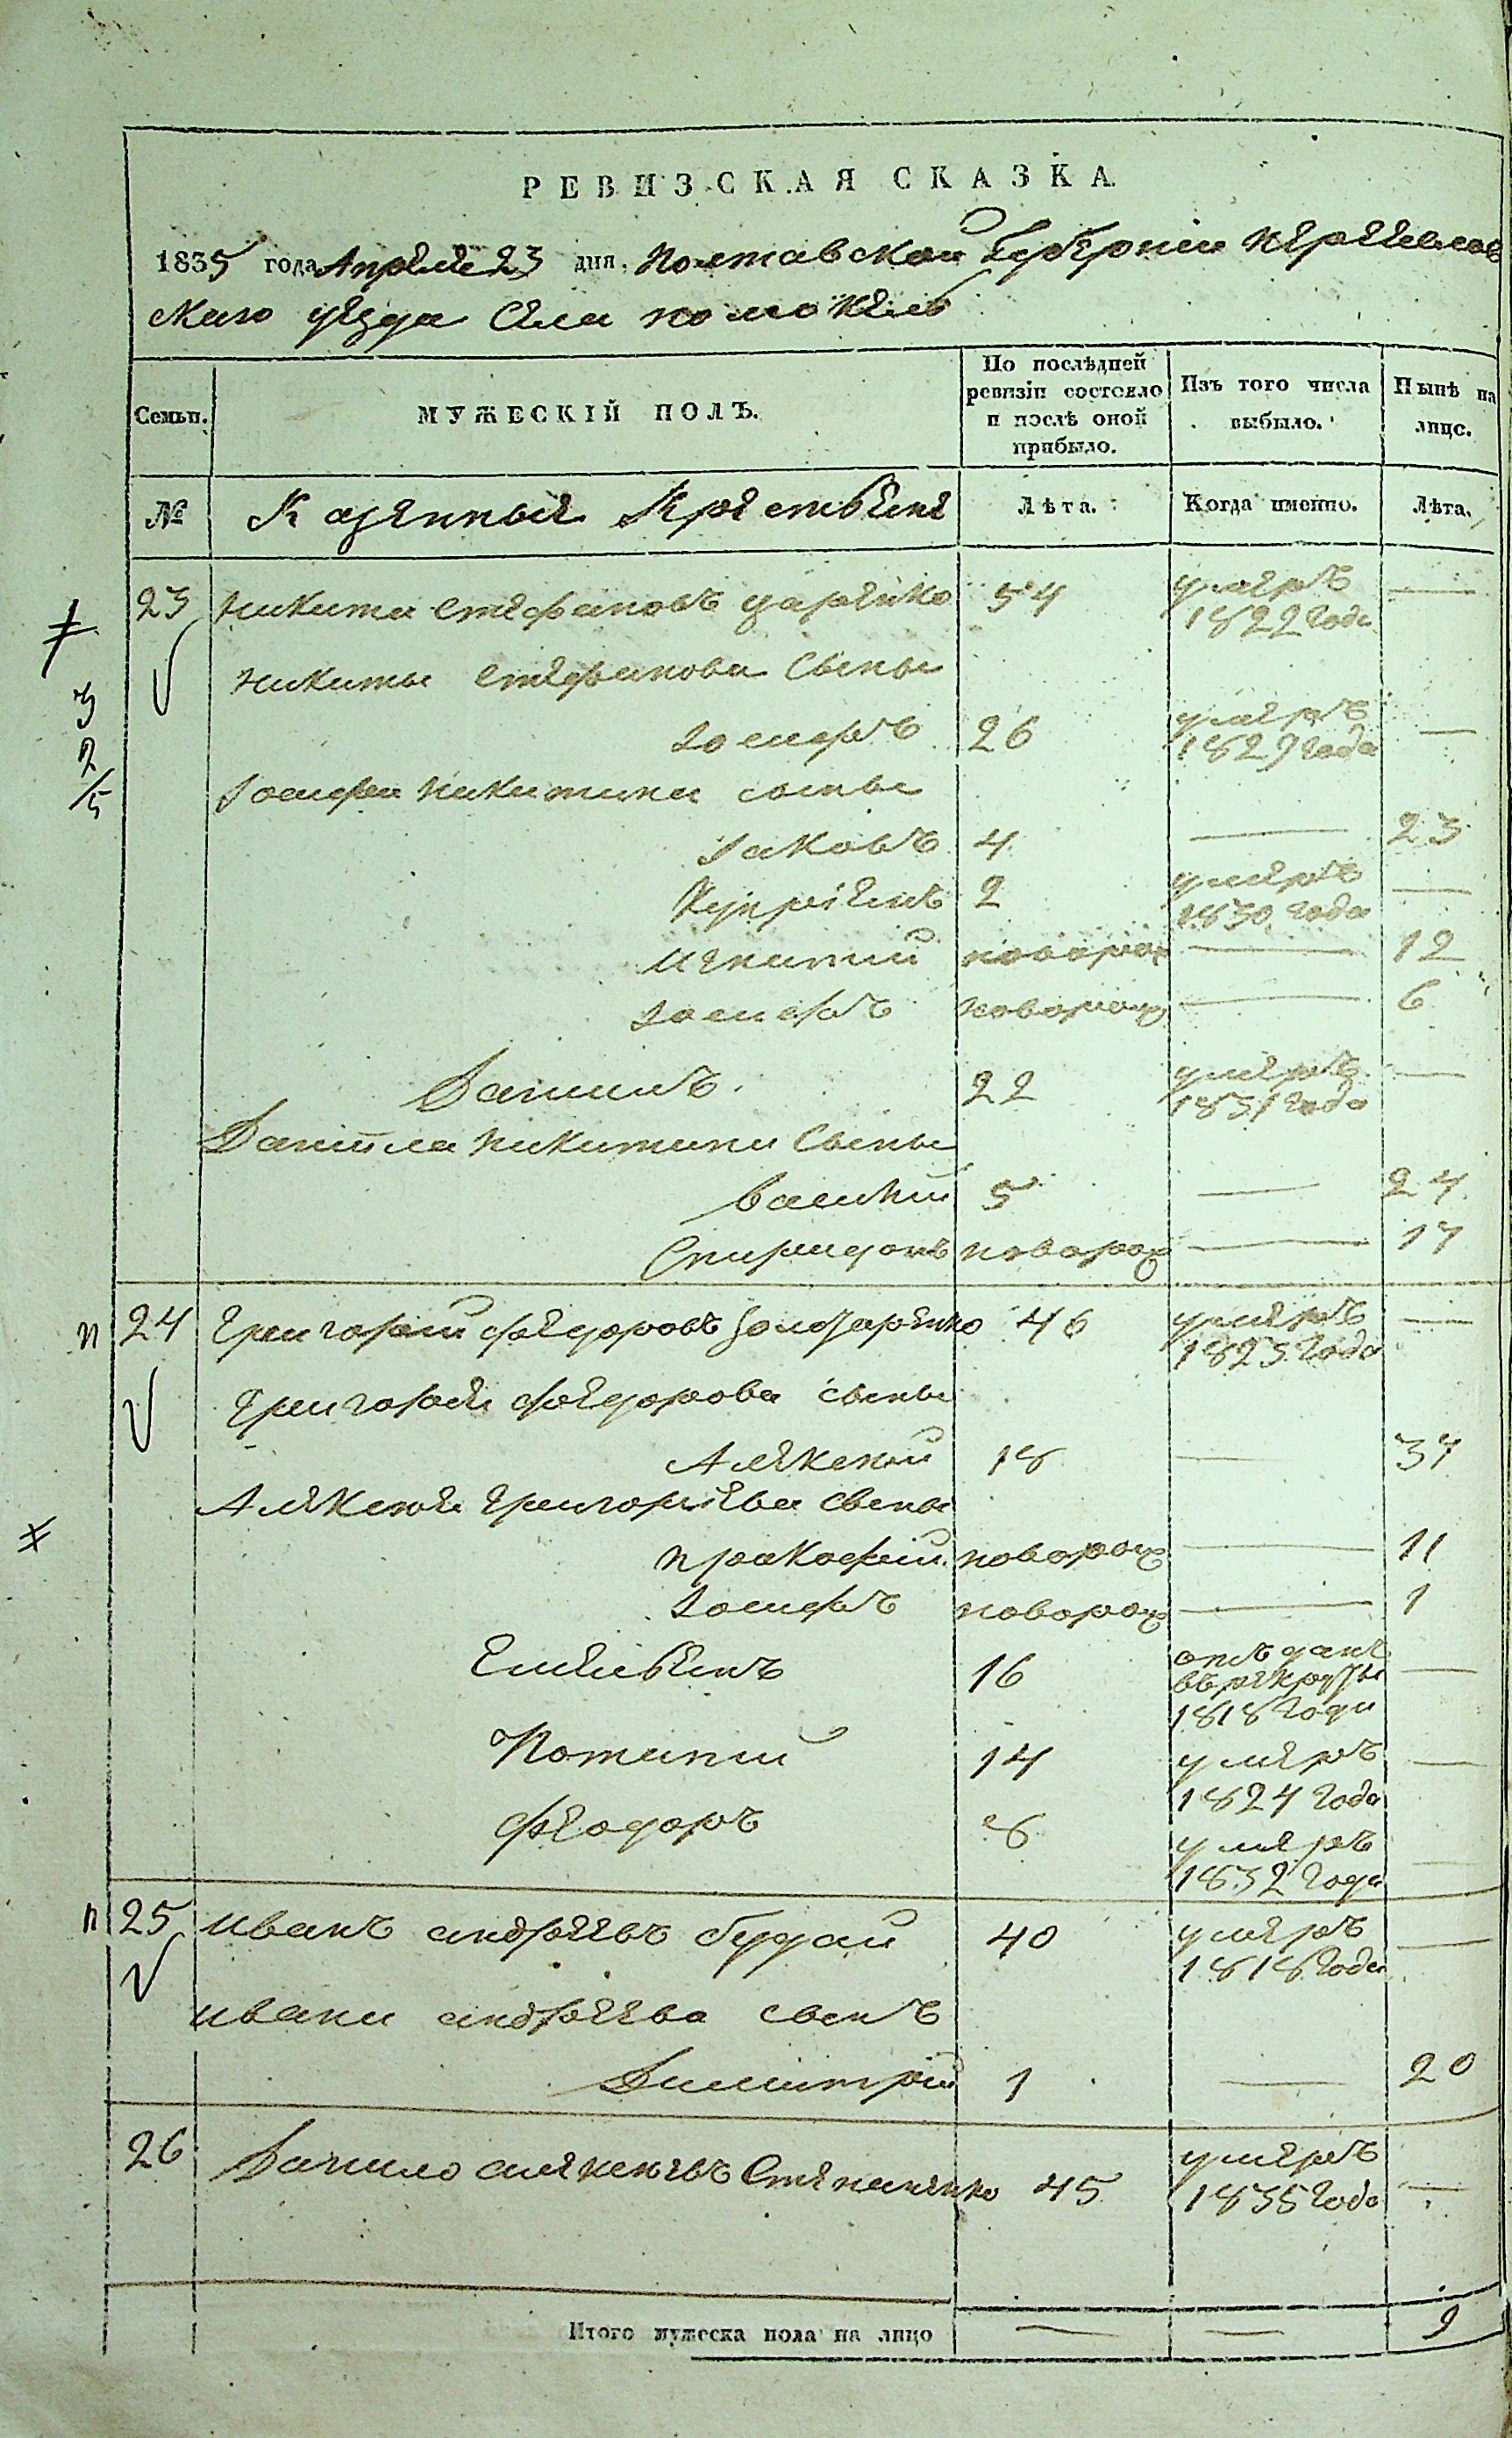 РЕВИЗСКАЯ СКАЗКА
1835 года Апреля 23 дня. Полтавской Губернии переяслав
скаго уезда Села помокель
Семьи. МУЖЕСКІЙ ПОЛЪ. По послѣдней ревизіи состояло и послѣ оной прибыло. Изъ того числа выбыло. Нынѣ на лице.
№ Казенныя Крестьяне Лѣта. Когда именно. Лѣта.
23 никита стефановъ царенко 54 умеръ 1822 года —
никиты стефанова Сыны
Iосифъ 26 умеръ 1829 года —
Iосифа никитина сыны
Iаковъ 4 — 23
Купріянъ 2 умеръ 1830 года —
Игнатий новорож — 12
Iосифъ новорож — 6
Данилъ 22 умеръ 1831 года —
Данiила никитина Сыны
василий 5 — 24
Спиридонъ новорож — 17
3
2
/5
п 24 григорий федоровъ золотаренко 46 умеръ 1823 года —
григория федорова сыны
Алексей 18 — 37
Алексея григорiева сыны
прокофий новорож — 11
Iосифъ новорож — 1
Емельянъ 16 отъданъ въ рекруты 1818 года —
Потапий 14 умеръ 1824 года —
феодоръ 8 умеръ 1832 года —
п 25 иванъ андреевъ будай 40 умеръ 1818 года —
ивана андреева сынъ
Димитрий 1 — 20
26 Данило алексеевъ Степаненко 45 умеръ 1835 года —
Итого мужеска пола на лицо — — 9